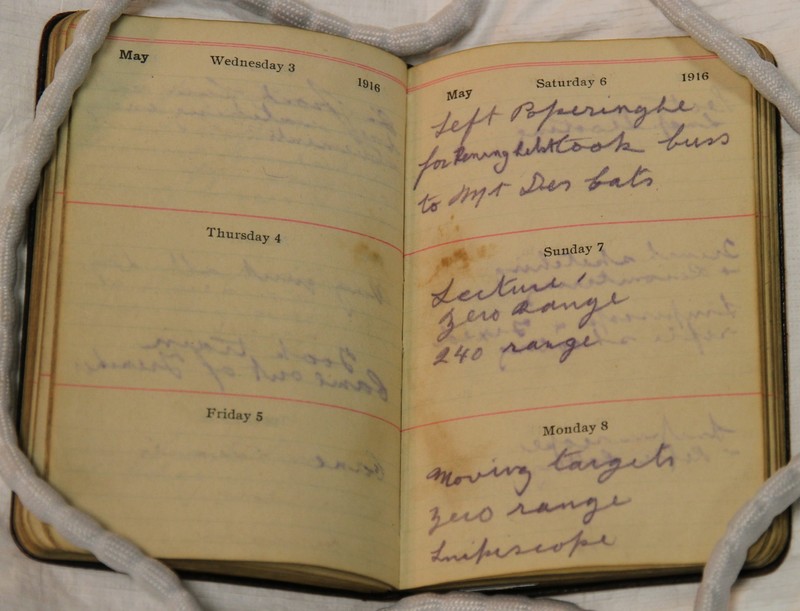 May Wednesday 3 1916
Thursday 4
Friday 5
May Saturday 6 1916
Left Poperinghe
took buss
to Mt Des Cats
Sunday 7
Lecture
Zero Range
240 range
Monday 8
Moving targets
Zero range
Snipescope